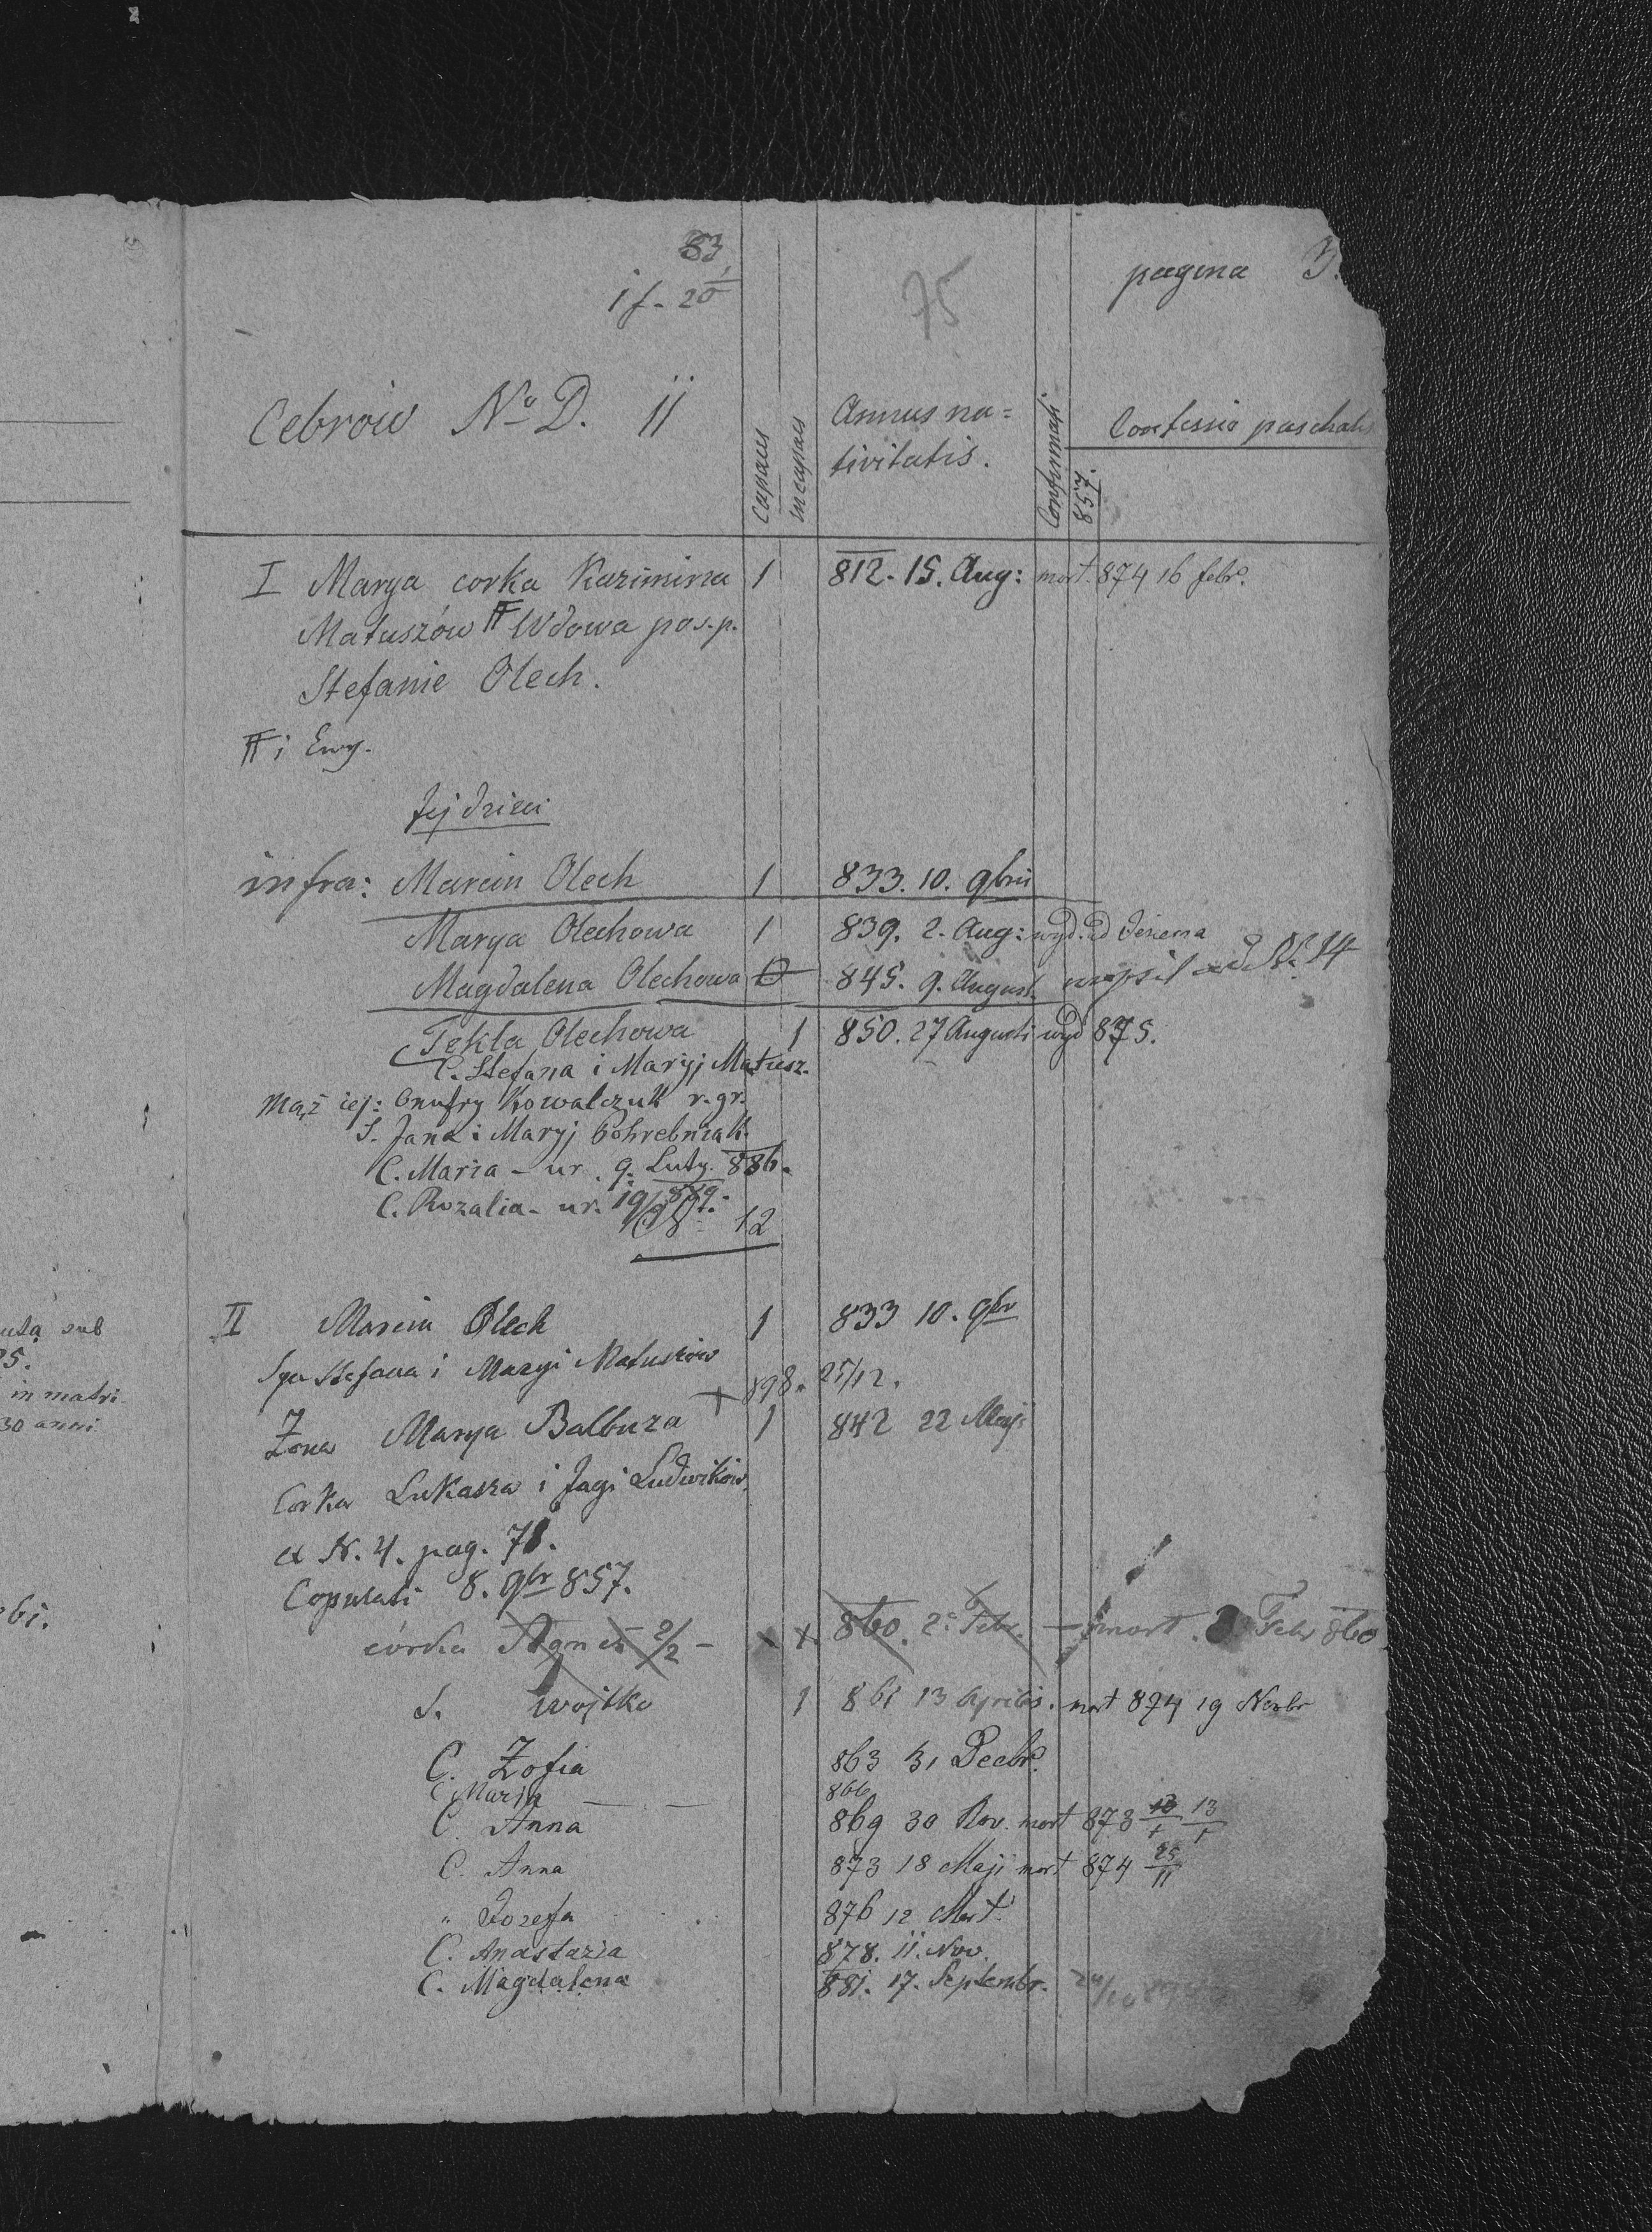 83
75
pagina
Cebrów No D. 11
Capaces
incapaces
Annus na=
tivitatis.
Confirmati
Confessio paschalis
857.
I Marya corka Kazimirza 1 812. 15. Aug: mort. 874 16 febr.
Matuszów Wdowa po ś.p.
Stefanie Olech.
i Ewy.
Jej dzieci
infra: Marcin Olech 1 833. 10. 9bris
Marya Olechowa 1 839. 2. Aug: wyd. ad Jezierna
Magdalena Olechowa 845. 9. August. ad N. 14
Tekla Olechowa 1 850. 27 Augusti wyd 875.
C. Stefana i Maryj Matusz.
Mąż jej: Onufry Kowalczuk r. gr.
S. Jana i Maryj Pohrebniak.
C. Maria - ur. 9. Luty. 886.
C. Rozalia - ur. 19/ 889.
12
II Marcin Olech 1 833 10. 9br
Syn Stefana i Maryi Matuszów
+ 898. 25/12.
Żona Marya Balbuza 1 842 22 Maji
Corka Lukasza i Jagi Ludwików
ex N. 4. pag. 71.
Copulati 8. 9br 857.
córka Agnes 2/2 - x x 860. 2 Febr. - mort. 3 Febr 860
S. Wojtko 1 861 13 Aprilis. mort 874 19 Novbr
C. Zofia 863 31 Decbr.
C. Maria — — 866
C. Anna 869 30 Nov. mort 873 13/1 13/1
C. Anna 873 18 Maji mort 874 25/11
" Jozefa 876 12 Mart.
C. Anastazia 878. 11. Nov.
C. Magdalena 881. 17. Septembr.
uta sub
in matri
30 anni